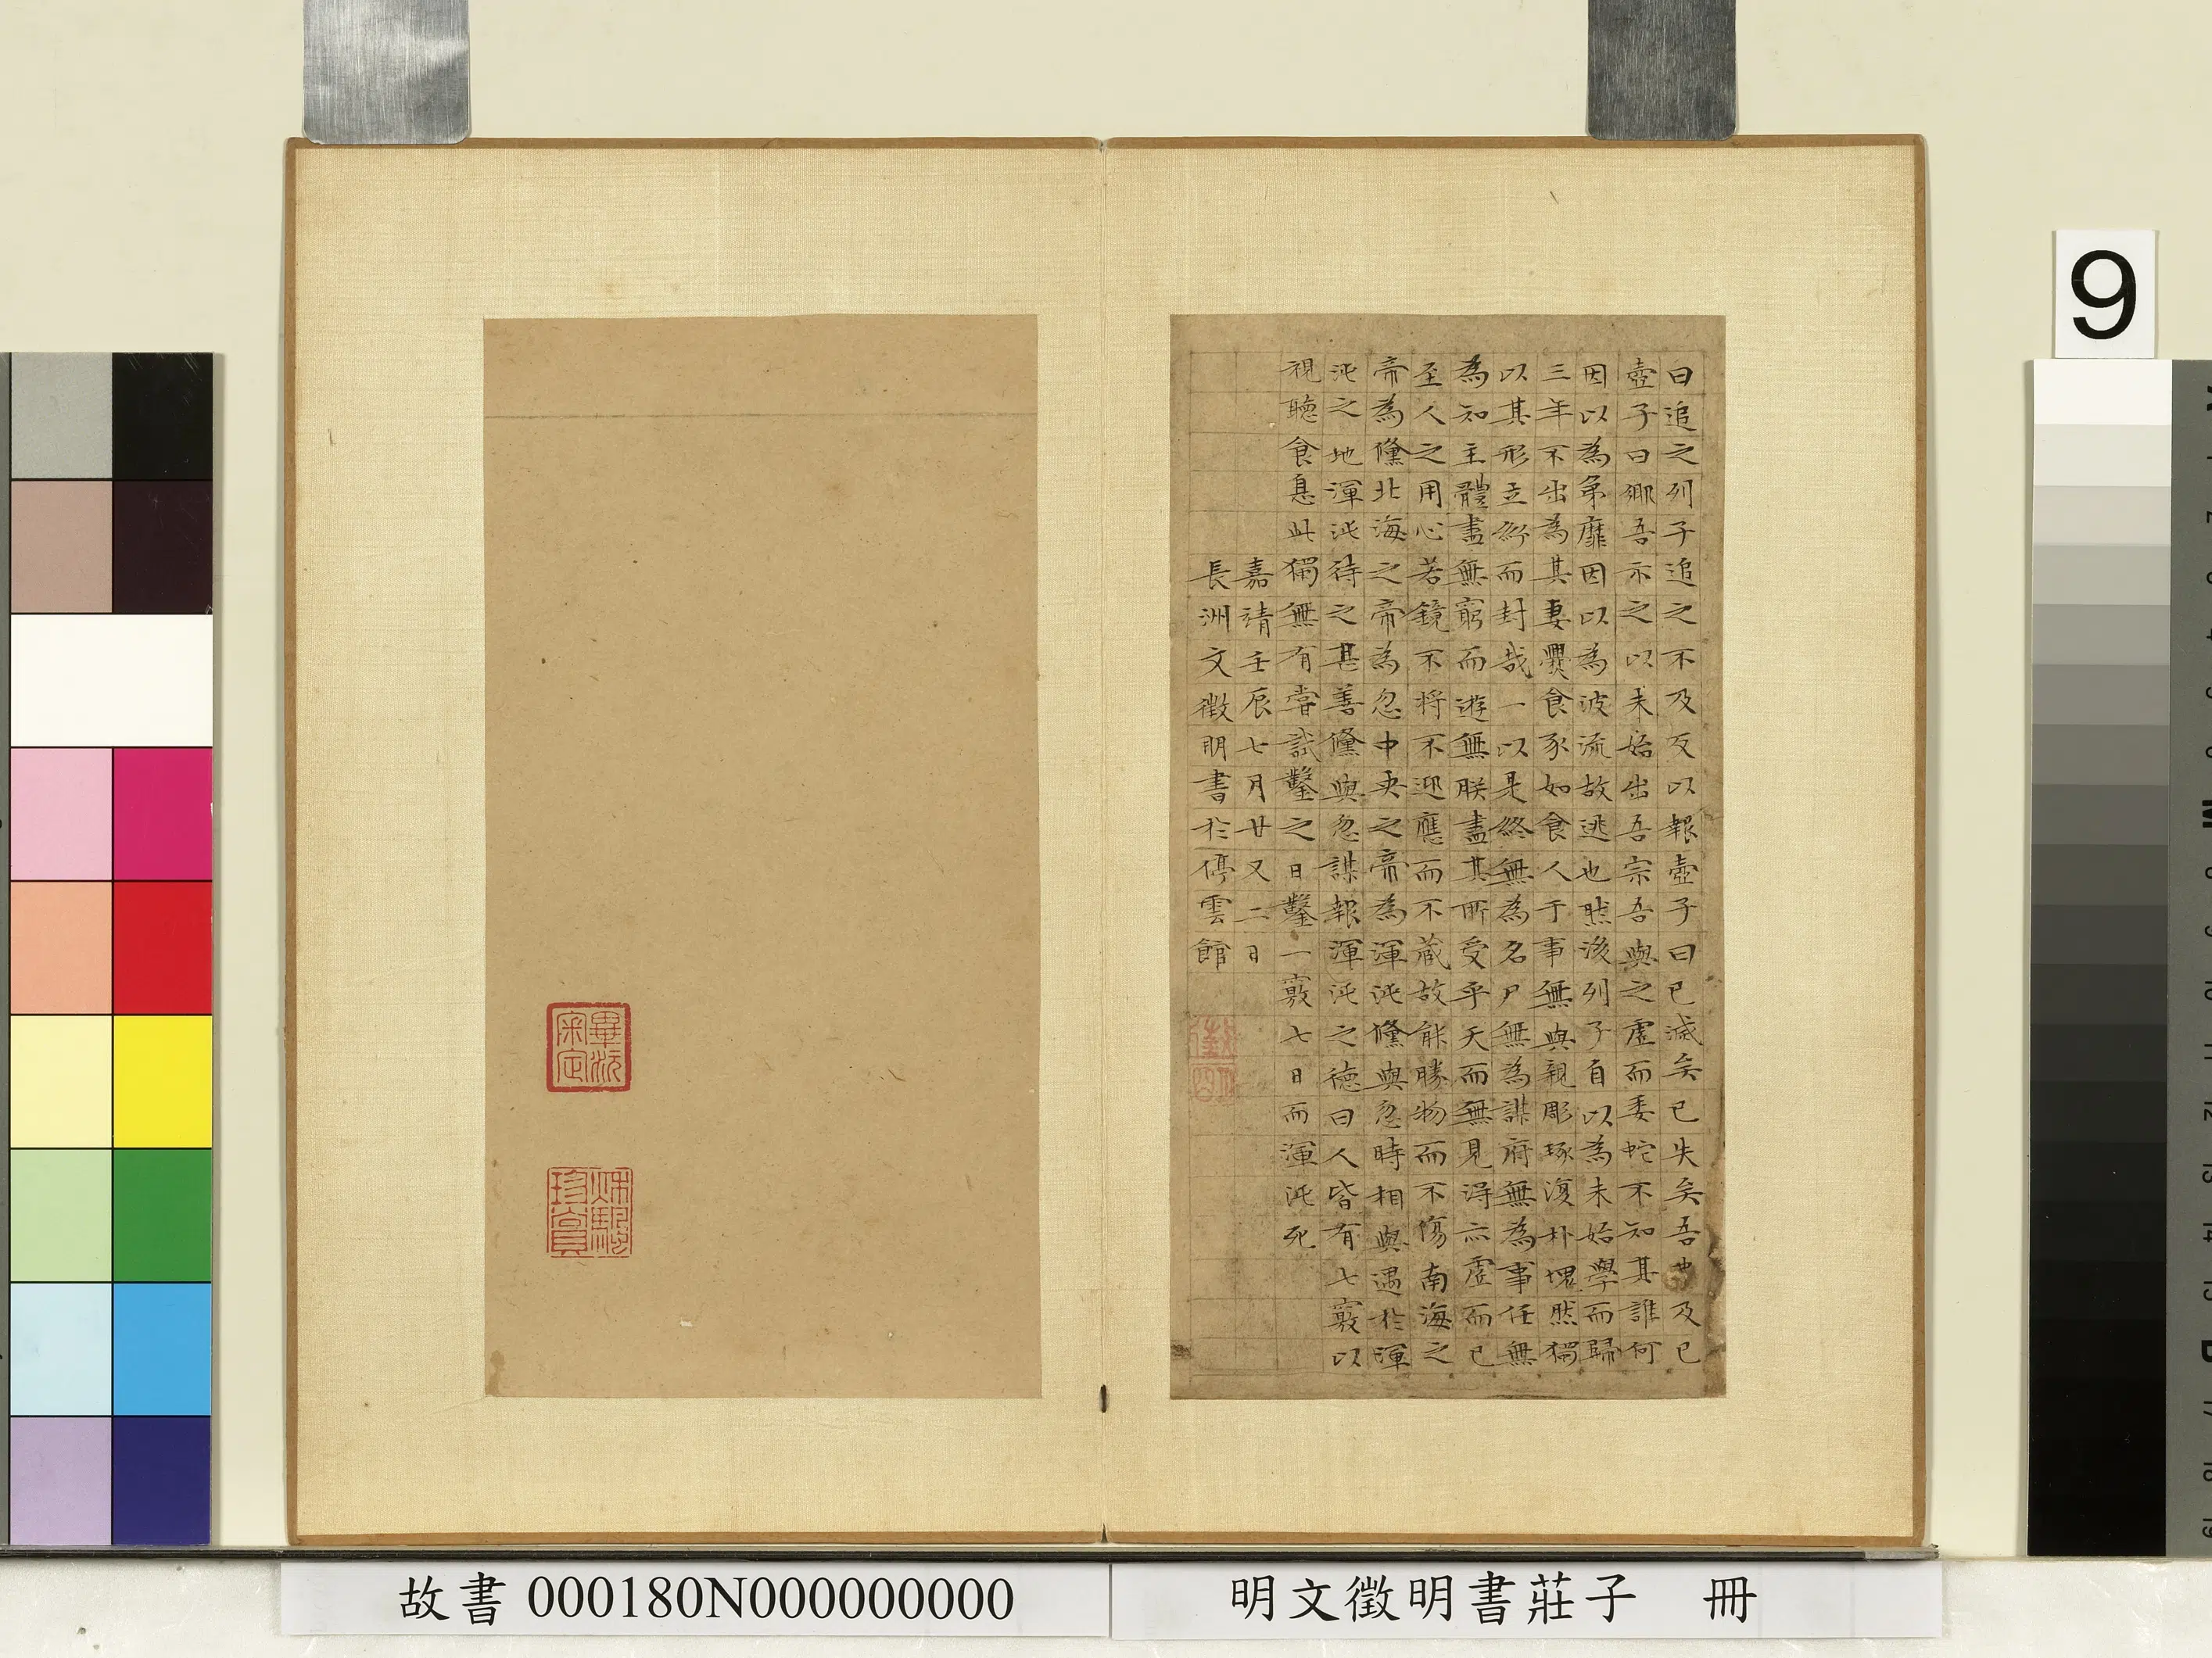 曰追之列子追之不及反以報壺子曰已滅矣已失矣吾及已
壺子曰鄉吾示之以未始出吾宗吾與之虛而委蛇不知其誰何
因以為弟靡因以為波流故逃也然後列子自以為未始學而歸
三年不出為其妻爨食豕如食人于事無與親彫琢復朴塊然獨
以其形立紛而封哉一以是終無為名尸無為謀府無為事任無
為知主體盡無窮而遊無朕盡其所受乎天而無見得亦虛而已
至人之用心若鏡不將不迎應而不藏故能勝物而不傷南海之
帝為儵北海之帝為忽中央之帝為渾沌儵與忽時相與遇於渾
沌之地渾沌待之甚善儵與忽謀報渾沌之德曰人皆有七竅以
視聽食息此獨無有嘗試鑿之日鑿一竅七日而渾沌死
嘉靖壬辰七月廿又二日
長洲文徵明書於停雲館
畢沅審定
秋颿珍賞
9
故書 000180N000000000
明文徵明書莊子 冊